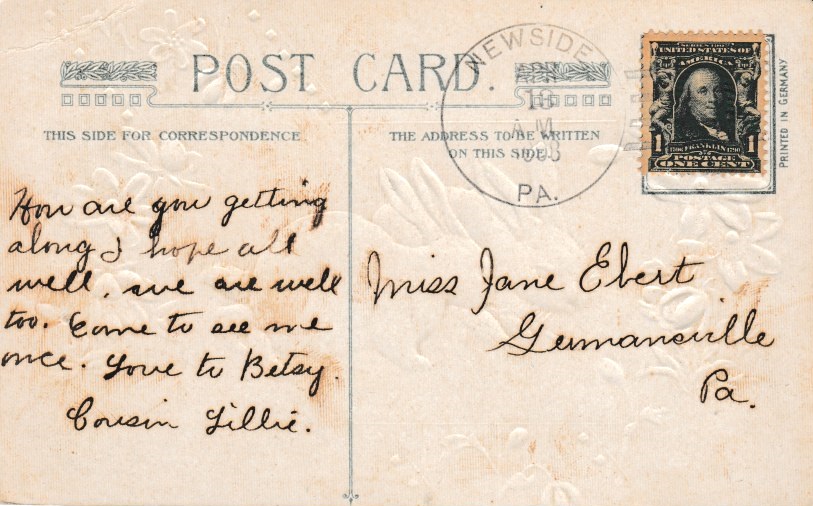 POST CARD.
THIS SIDE FOR CORRESPONDENCE
THE ADDRESS TO BE WRITTEN
ON THIS SIDE
NEWSIDE
APR
18
A.M.
PA.
SERIES 1902
UNITED STATES OF
AMERICA
1706 FRANKLIN 1790
1 POSTAGE 1
ONE CENT
PRINTED IN GERMANY
How are you getting
along I hope all
well. we are well
too. Come to see me
once. Love to Betsy.
Cousin Lillie.
Miss Jane Ebert
Germansville
Pa.